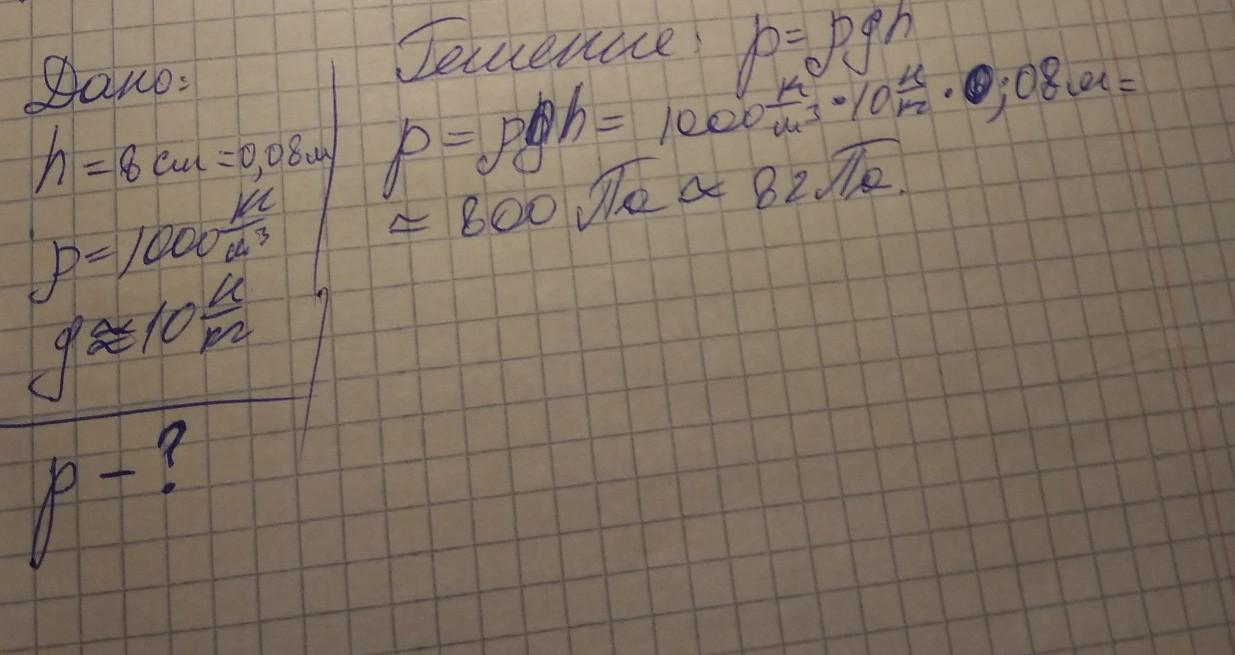 Дано:
h = 8 см = 0,08 м
p = 1000 кг/м³
g ≈ 10 Н/кг
p - ?
Решение: p = pgh
p = pgh = 1000 к/м³ · 10 Н/кг · 0,08 м =
≈ 800 Па ≈ 82 Па.